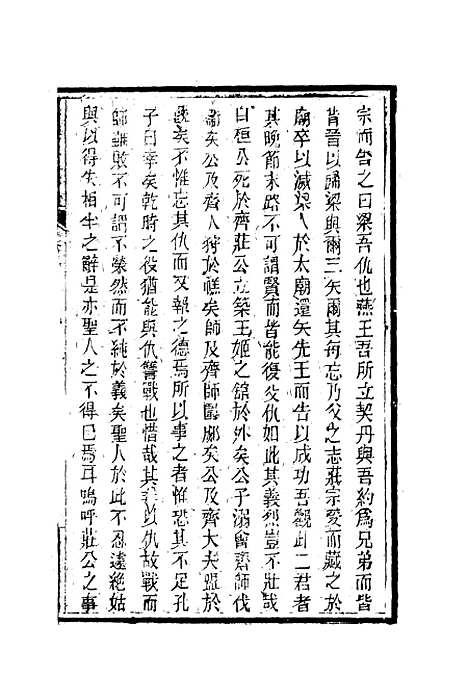 宗而告之曰梁吾仇也燕王吾所立契丹與吾約爲兄弟而皆
背晉以歸梁與爾三矢爾其毋忘乃父之志莊宗受而藏之於
廟卒以滅梁入於太廟還矢先王而告以成功吾觀此二君者
其晚節末路不可謂賢而皆能復父仇如此其義烈豈不壯哉
曰桓公死於齊莊公立築王姬之舘於外矣公子溺會齊師伐
衛矣公及齊人狩於禚矣師及齊師圍郕矣公及齊大夫盟於
蔇矣不惟忘其仇而又報之德焉所以事之者惟恐其不足孔
子曰幸矣乾時之役猶能與仇讐戰也惜哉其非以仇故戰而
師雖敗不可謂不榮然而不純於義矣聖人於此不忍遽絶姑
與以得失相半之辭是亦聖人之不得已焉耳嗚呼莊公之事